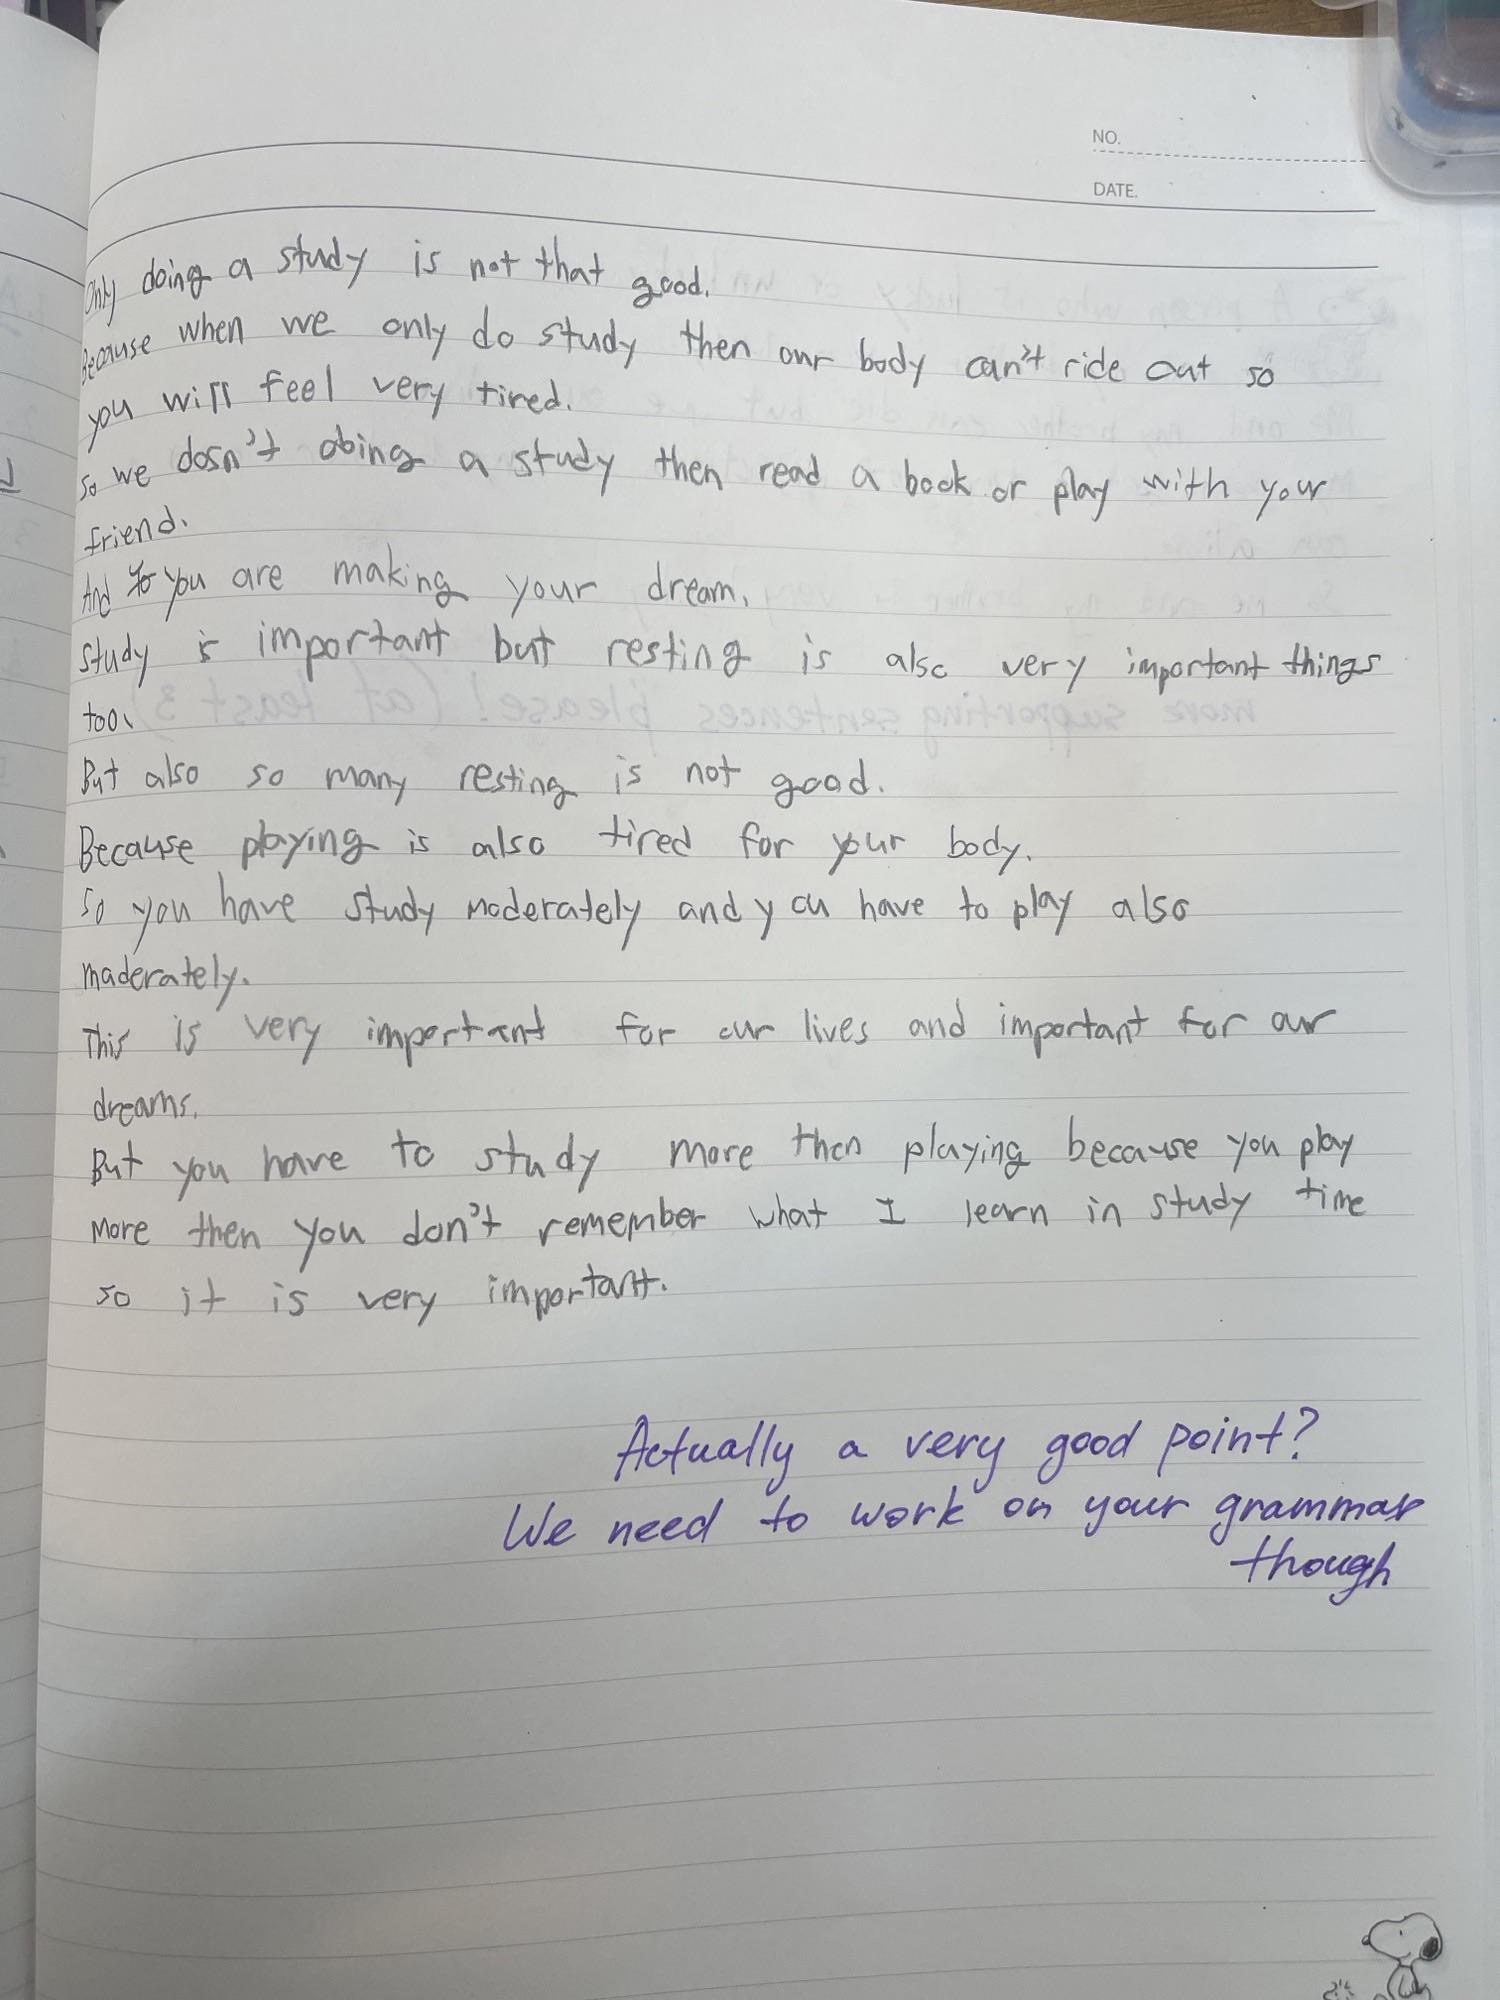 NO.
DATE.
Only doing a study is not that good.
Because when we only do study then our body can't ride out so
you will feel very tired.
so we dosn't obing a study then read a book or play with your
friend.
And you are making your dream.
study is important but resting is also very important things
too.
But also so many resting is not good.
Because playing is also tired for your body.
So you have study moderately and you have to play also
maderately.
This is very important for our lives and important for our
dreams.
But you have to study more then playing because you play
more then you don't remember what I learn in study time
so it is very important.
Actually a very good point?
We need to work on your grammar
though